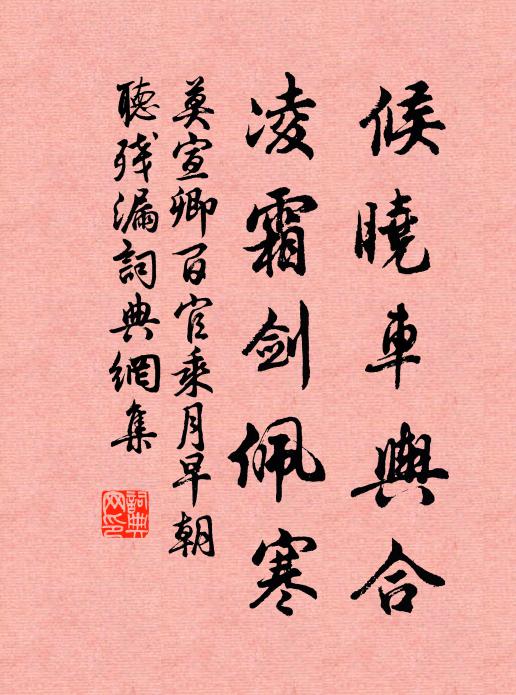 候曉車輿合
凌霜劍佩寒
莫宣卿百官乘月早朝
聽殘漏詞典網集
詞典
网印